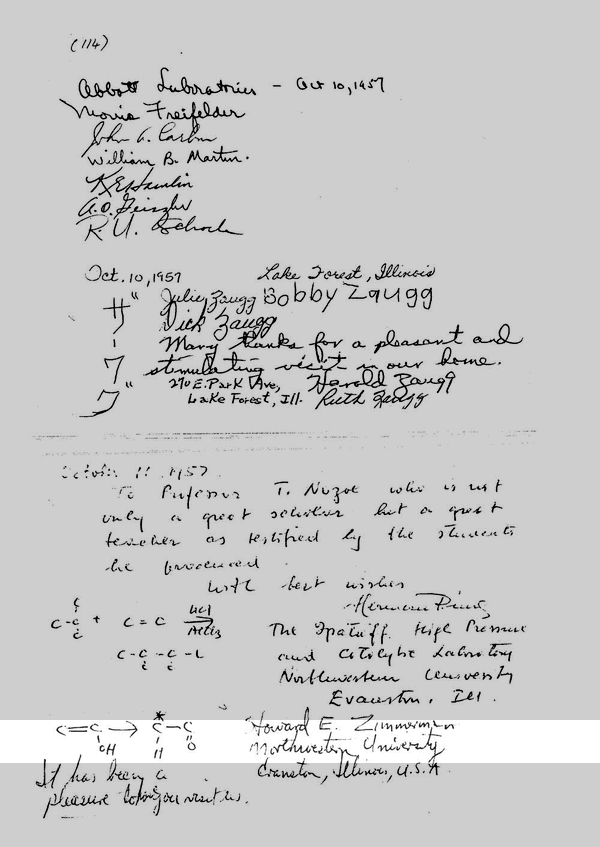 (114)
Abbott Laboratories - Oct 10, 1957
Morris Freifelder
John G. Carbon
William B. Martin.
K E Hamlin
A.O. Geiszler
R. U. Schock
Oct. 10, 1957 Lake Forest, Illinois
ザーグ Julie Zaugg Bobby Zaugg
Dick Zaugg
Many thanks for a pleasant and
stimulating visit in our home.
270 E. Park Ave, Harold Zaugg
Lake Forest, Ill. Ruth Zaugg
October 11 1957
To Professor T. Nozoe who is not
only a great scholar but a great
teacher as testified by the students
he produced
with best wishes
Herman Pines
C-C + C=C HCl
C
C
AlCl3 The Ipatieff High Pressure
C-C-C-C and Catalytic Laboratory
Northwestern University
Evanston, Ill.
C=C → *C-C Howard E. Zimmerman
OH H O Northwestern University
Evanston, Illinois, U.S.A.
It has been a
pleasure having you visit us.